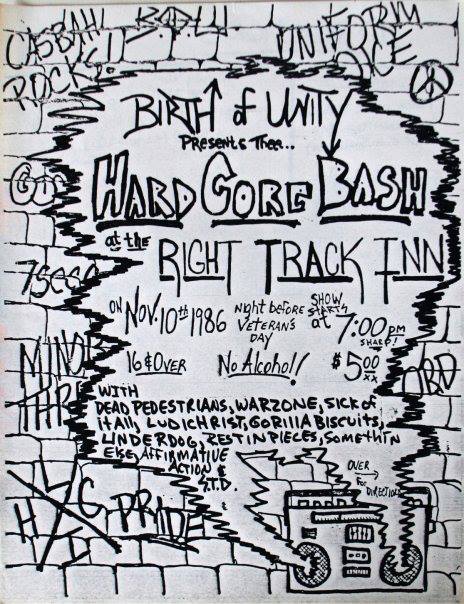 CASBAH
ROCKS!
B.O.U.
UNIFORM
BIRTH of UNITY
Presents Thee..
HARD CORE BASH
at the
RIGHT TRACK INN
ON NOV. 10th 1986
Night before
VETERAN'S
DAY
SHOW
STARTS
at 7:00 pm
SHARP!
16 & OVER
No Alcohol!
$5.00
xx
WITH
DEAD PEDESTRIANS, WARZONE, SICK of
it All, LUDICHRIST, GORILLA BISCUITS,
UNDERDOG, REST IN PIECES, SOMETHIN
ELSE, AFFIRMATIVE
ACTION &
S.T.D.
OVER
For
DIRECTIONS
PRIDE